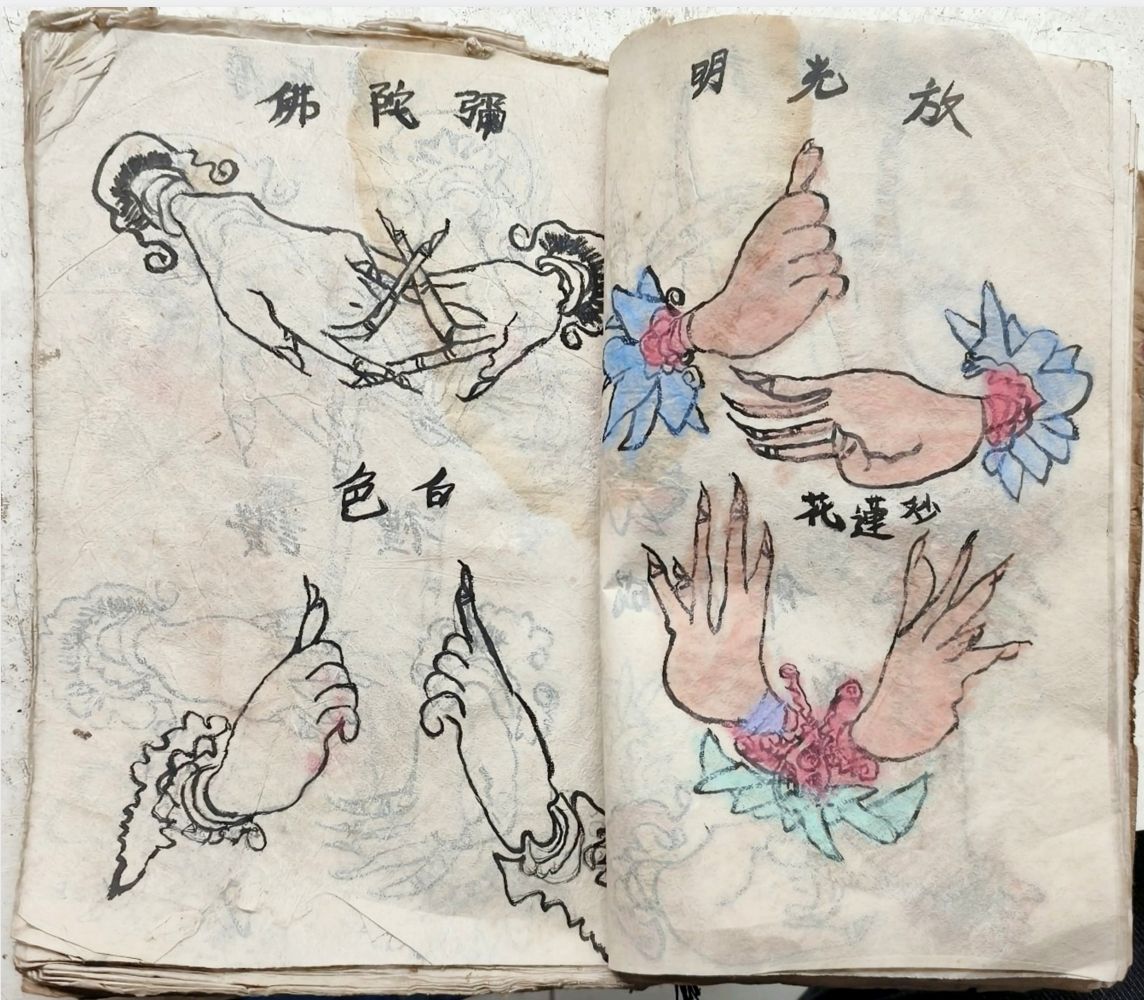 放光明
妙蓮花
彌陀佛
白色